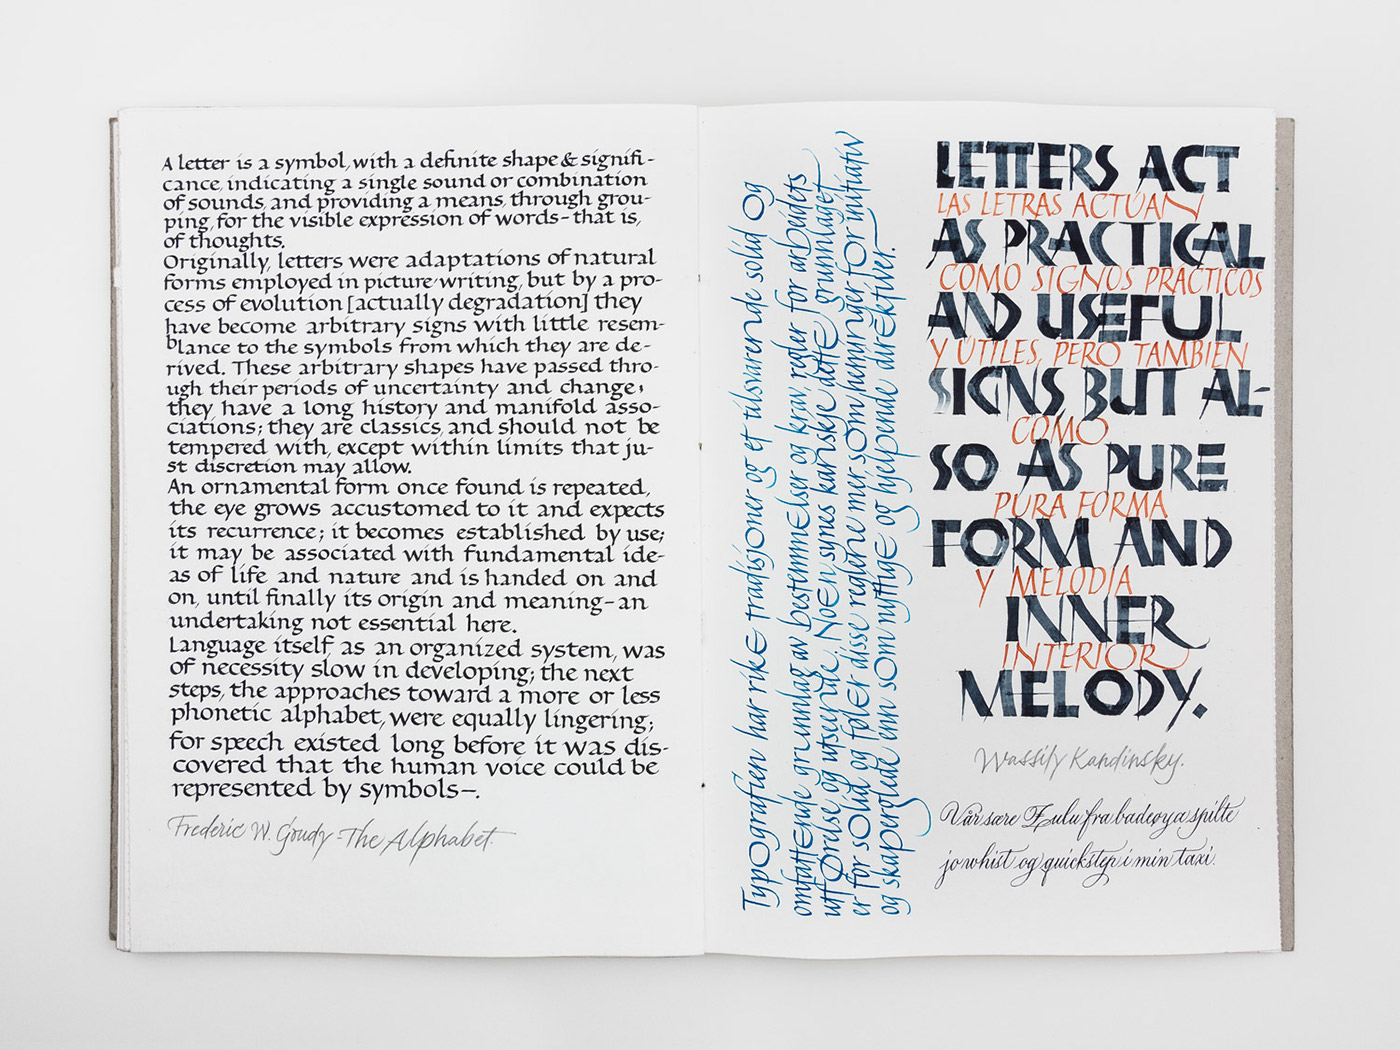 A letter is a symbol, with a definite shape & signifi-
cance, indicating a single sound or combination
of sounds, and providing a means, through grou-
ping, for the visible expression of words – that is,
of thoughts.
Originally, letters were adaptations of natural
forms employed in picture-writing, but by a pro-
cess of evolution [actually degradation] they
have become arbitrary signs with little resem-
blance to the symbols from which they are de-
rived. These arbitrary shapes have passed thro-
ugh their periods of uncertainty and change,
they have a long history and manifold asso-
ciations; they are classics, and should not be
tempered with, except within limits that ju-
st discretion may allow.
An ornamental form once found is repeated,
the eye grows accustomed to it and expects
its recurrence; it becomes established by use;
it may be associated with fundamental ide-
as of life and nature and is handed on and
on, until finally its origin and meaning – an
undertaking not essential here.
Language itself, as an organized system, was
of necessity slow in developing; the next
steps, the approaches toward a more or less
phonetic alphabet, were equally lingering;
for speech existed long before it was dis-
covered that the human voice could be
represented by symbols –.
Frederic W. Goudy - The Alphabet.
Typografien har rike tradisjoner og et tilsvarende solid og
omfattende grunnlag av bestemmelser og krav, regler for arbeidets
utførelse og utseende. Noen synes kanskje dette grunnlaget
er for solid og føler disse reglene mer som hemninger for initiativ
og skaperglede enn som nyttige og hjelpende direktiver.
LETTERS ACT
LAS LETRAS ACTÚAN
AS PRACTICAL
COMO SIGNOS PRÁCTICOS
AND USEFUL
Y ÚTILES, PERO TAMBIÉN
SIGNS BUT AL-
COMO
SO AS PURE
PURA FORMA
FORM AND
Y MELODÍA
INNER
INTERIOR
MELODY.
Wassily Kandinsky.
Vår sære Zulu fra badeøya spilte
jo whist og quickstep i min taxi.